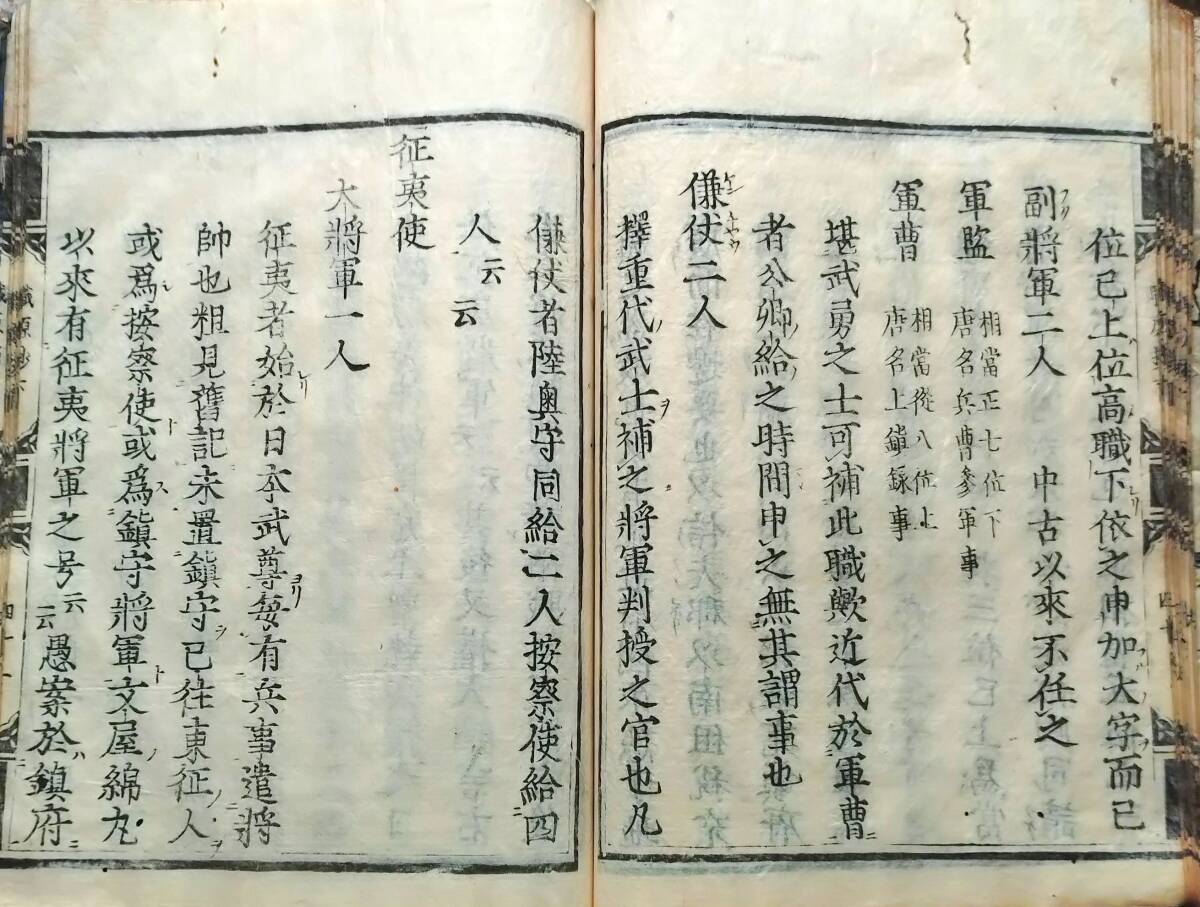 位已上位高職下依之申加大字而已
副將軍二人　中古以來不任之
軍監　相當正七位下
唐名兵曹參軍事
軍曹　相當從八位上
唐名上鎮錄事
堪武勇之士可補此職歟近代於軍曹
者公卿給之時間申之無其謂事也
傔仗二人
擇重代武士補之將軍判授之官也凡
傔仗者陸奥守同給二人按察使給四
人云云
征夷使
大將軍一人
征夷者始於日本武尊每有兵事遣將
帥也粗見舊記未置鎮守已往東征人
或爲按察使或爲鎮守將軍文屋綿丸
以來有征夷將軍之号云云愚案於鎮府